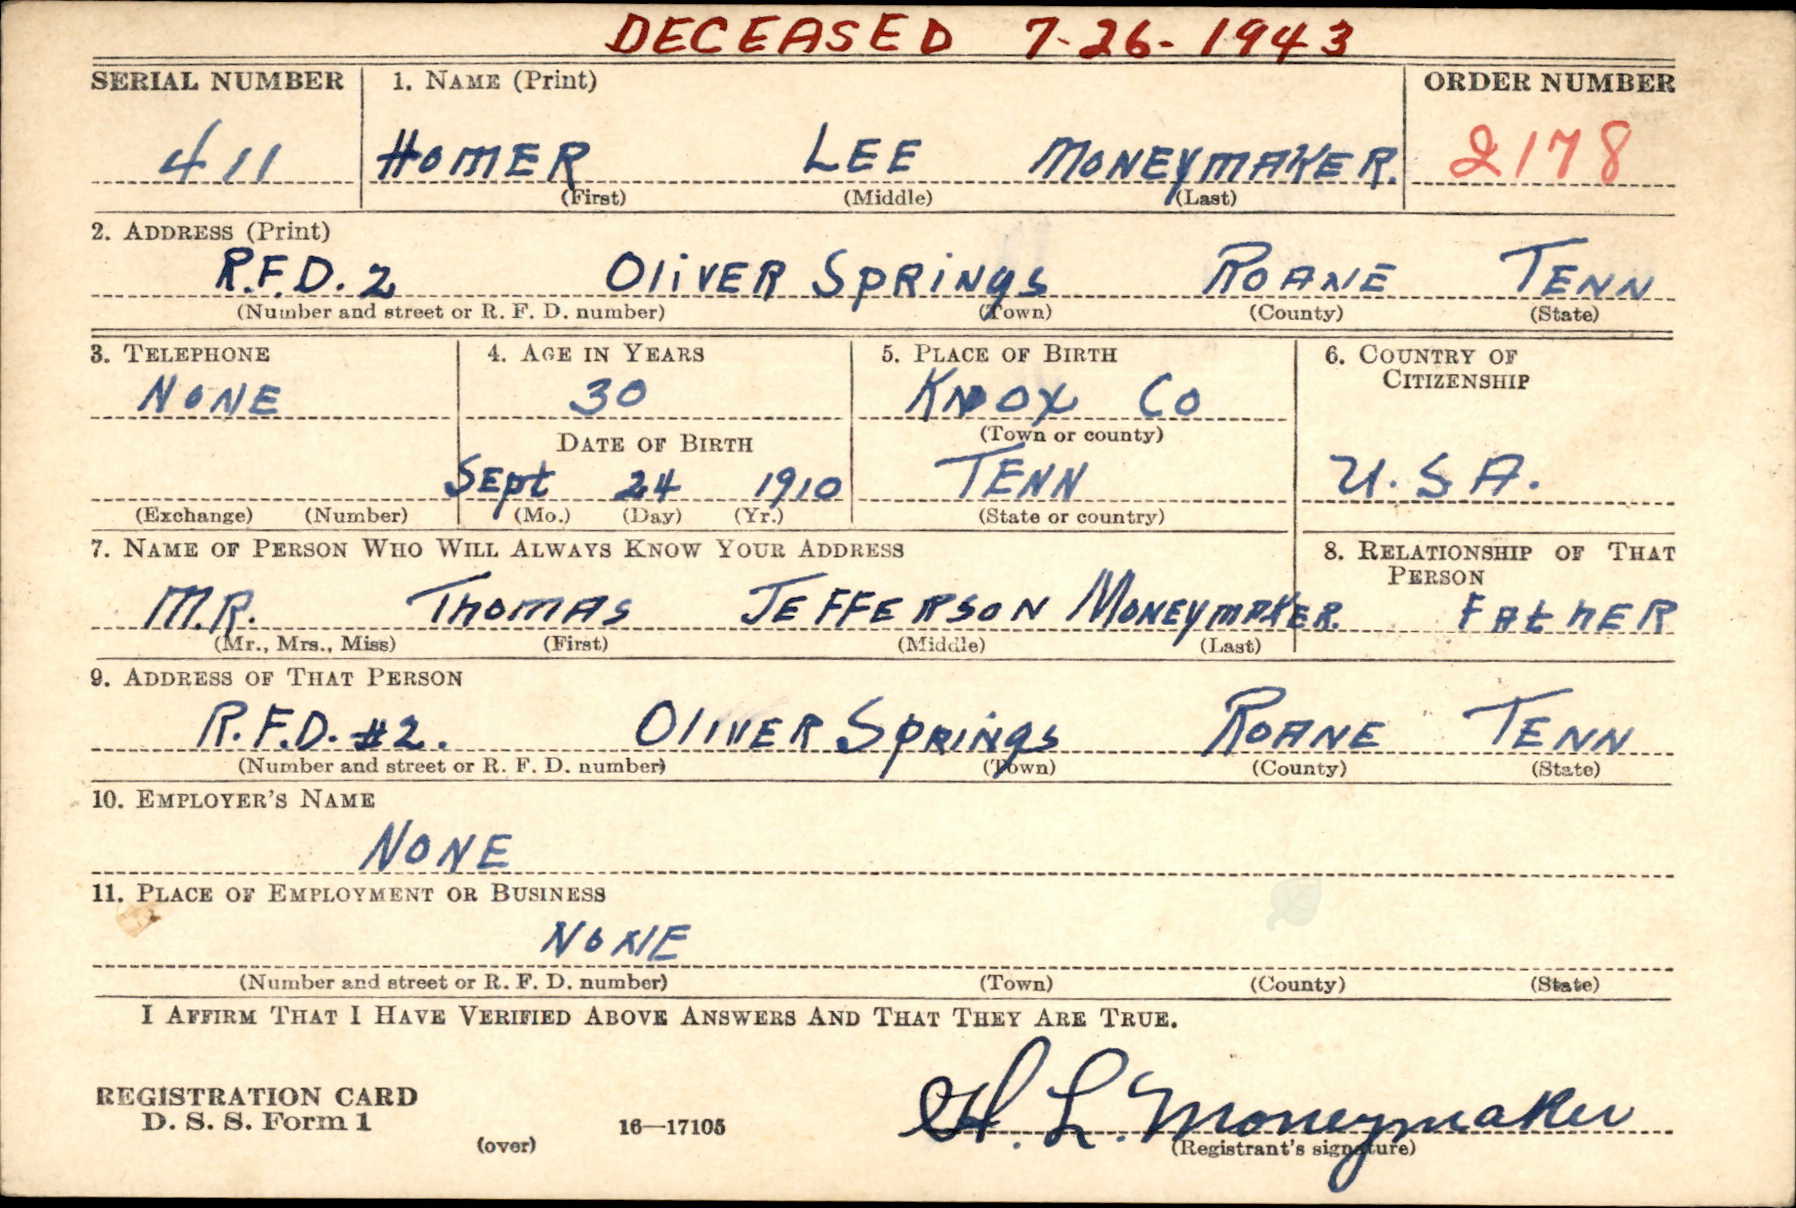 DECEASED 7-26-1943
SERIAL NUMBER 1. NAME (Print) ORDER NUMBER
411 HOMER LEE MONEYMAKER. 2178
(First) (Middle) (Last)
2. ADDRESS (Print)
R.F.D. 2 OliVER SPRiNgS ROANE TENN
(Number and street or R. F. D. number) (Town) (County) (State)
3. TELEPHONE 4. AGE IN YEARS 5. PLACE OF BIRTH 6. COUNTRY OF CITIZENSHIP
NONE 30 KNOX CO
DATE OF BIRTH (Town or county)
SEpt 24 1910 TENN U.S.A.
(Exchange) (Number) (Mo.) (Day) (Yr.) (State or country)
7. NAME OF PERSON WHO WILL ALWAYS KNOW YOUR ADDRESS 8. RELATIONSHIP OF THAT PERSON
M.R. THOMAS JEFFERSON MONEYMAKER. FAthER
(Mr., Mrs., Miss) (First) (Middle) (Last)
9. ADDRESS OF THAT PERSON
R.F.D. #2. OliVER SPRiNgS ROANE TENN
(Number and street or R. F. D. number) (Town) (County) (State)
10. EMPLOYER'S NAME
NONE
11. PLACE OF EMPLOYMENT OR BUSINESS
NONE
(Number and street or R. F. D. number) (Town) (County) (State)
I AFFIRM THAT I HAVE VERIFIED ABOVE ANSWERS AND THAT THEY ARE TRUE.
REGISTRATION CARD
D. S. S. Form 1 H. L. Moneymaker
(over) 16—17105 (Registrant's signature)